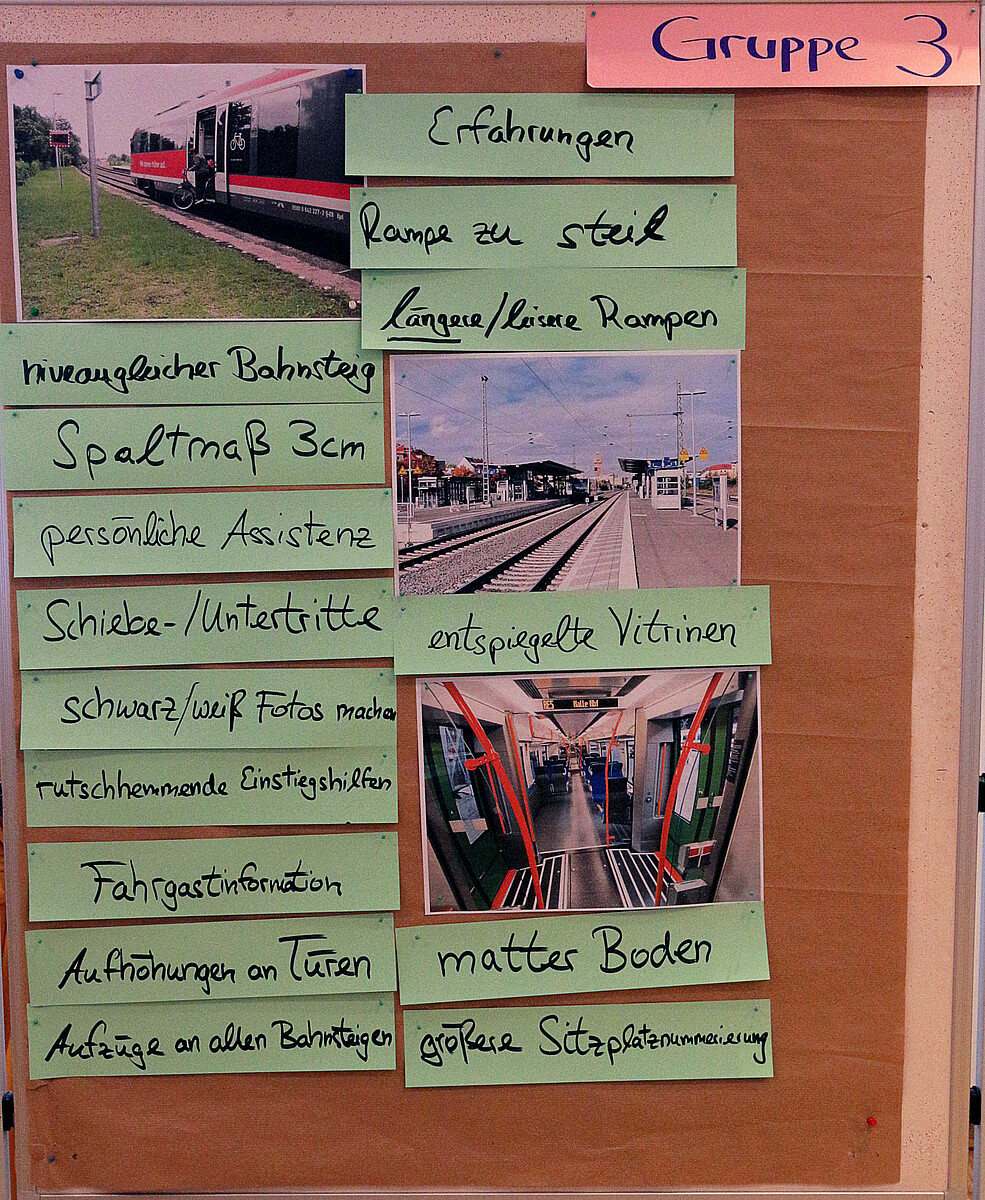 Gruppe 3
Erfahrungen
Rampe zu steil
längere/leisere Rampen
niveaugleicher Bahnsteig
Spaltmaß 3cm
persönliche Assistenz
Schiebe-/Untertritte
schwarz/weiß Fotos machen
rutschhemmende Einstiegshilfen
Fahrgastinformation
Aufhöhungen an Türen
Aufzüge an allen Bahnsteigen
entspiegelte Vitrinen
RE5 Halle Hbf
matter Boden
größere Sitzplatznummerierung